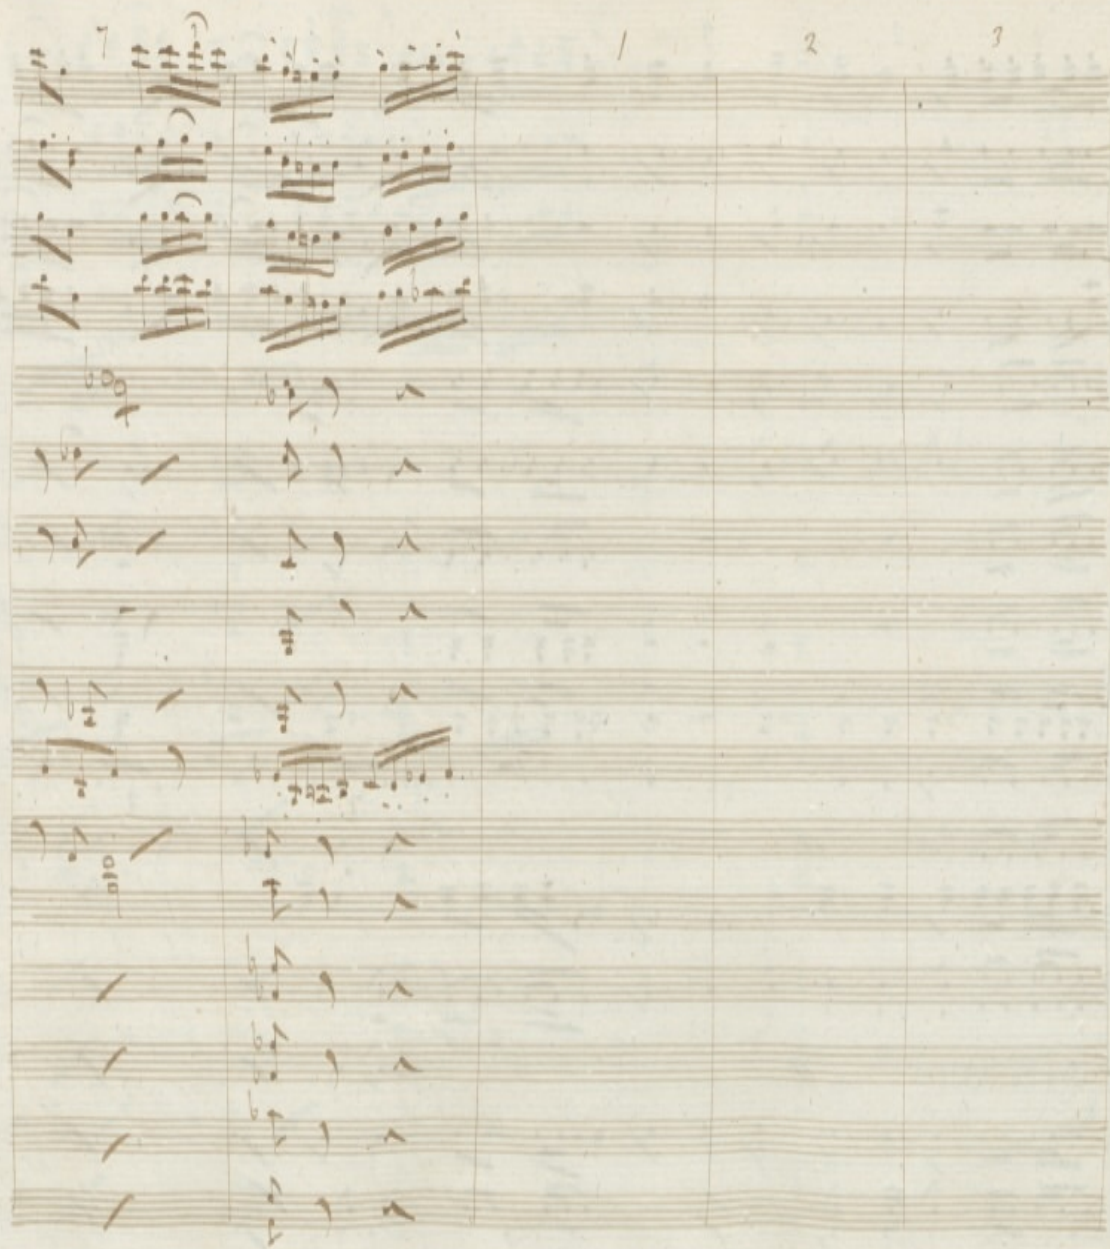 7 1 2 3